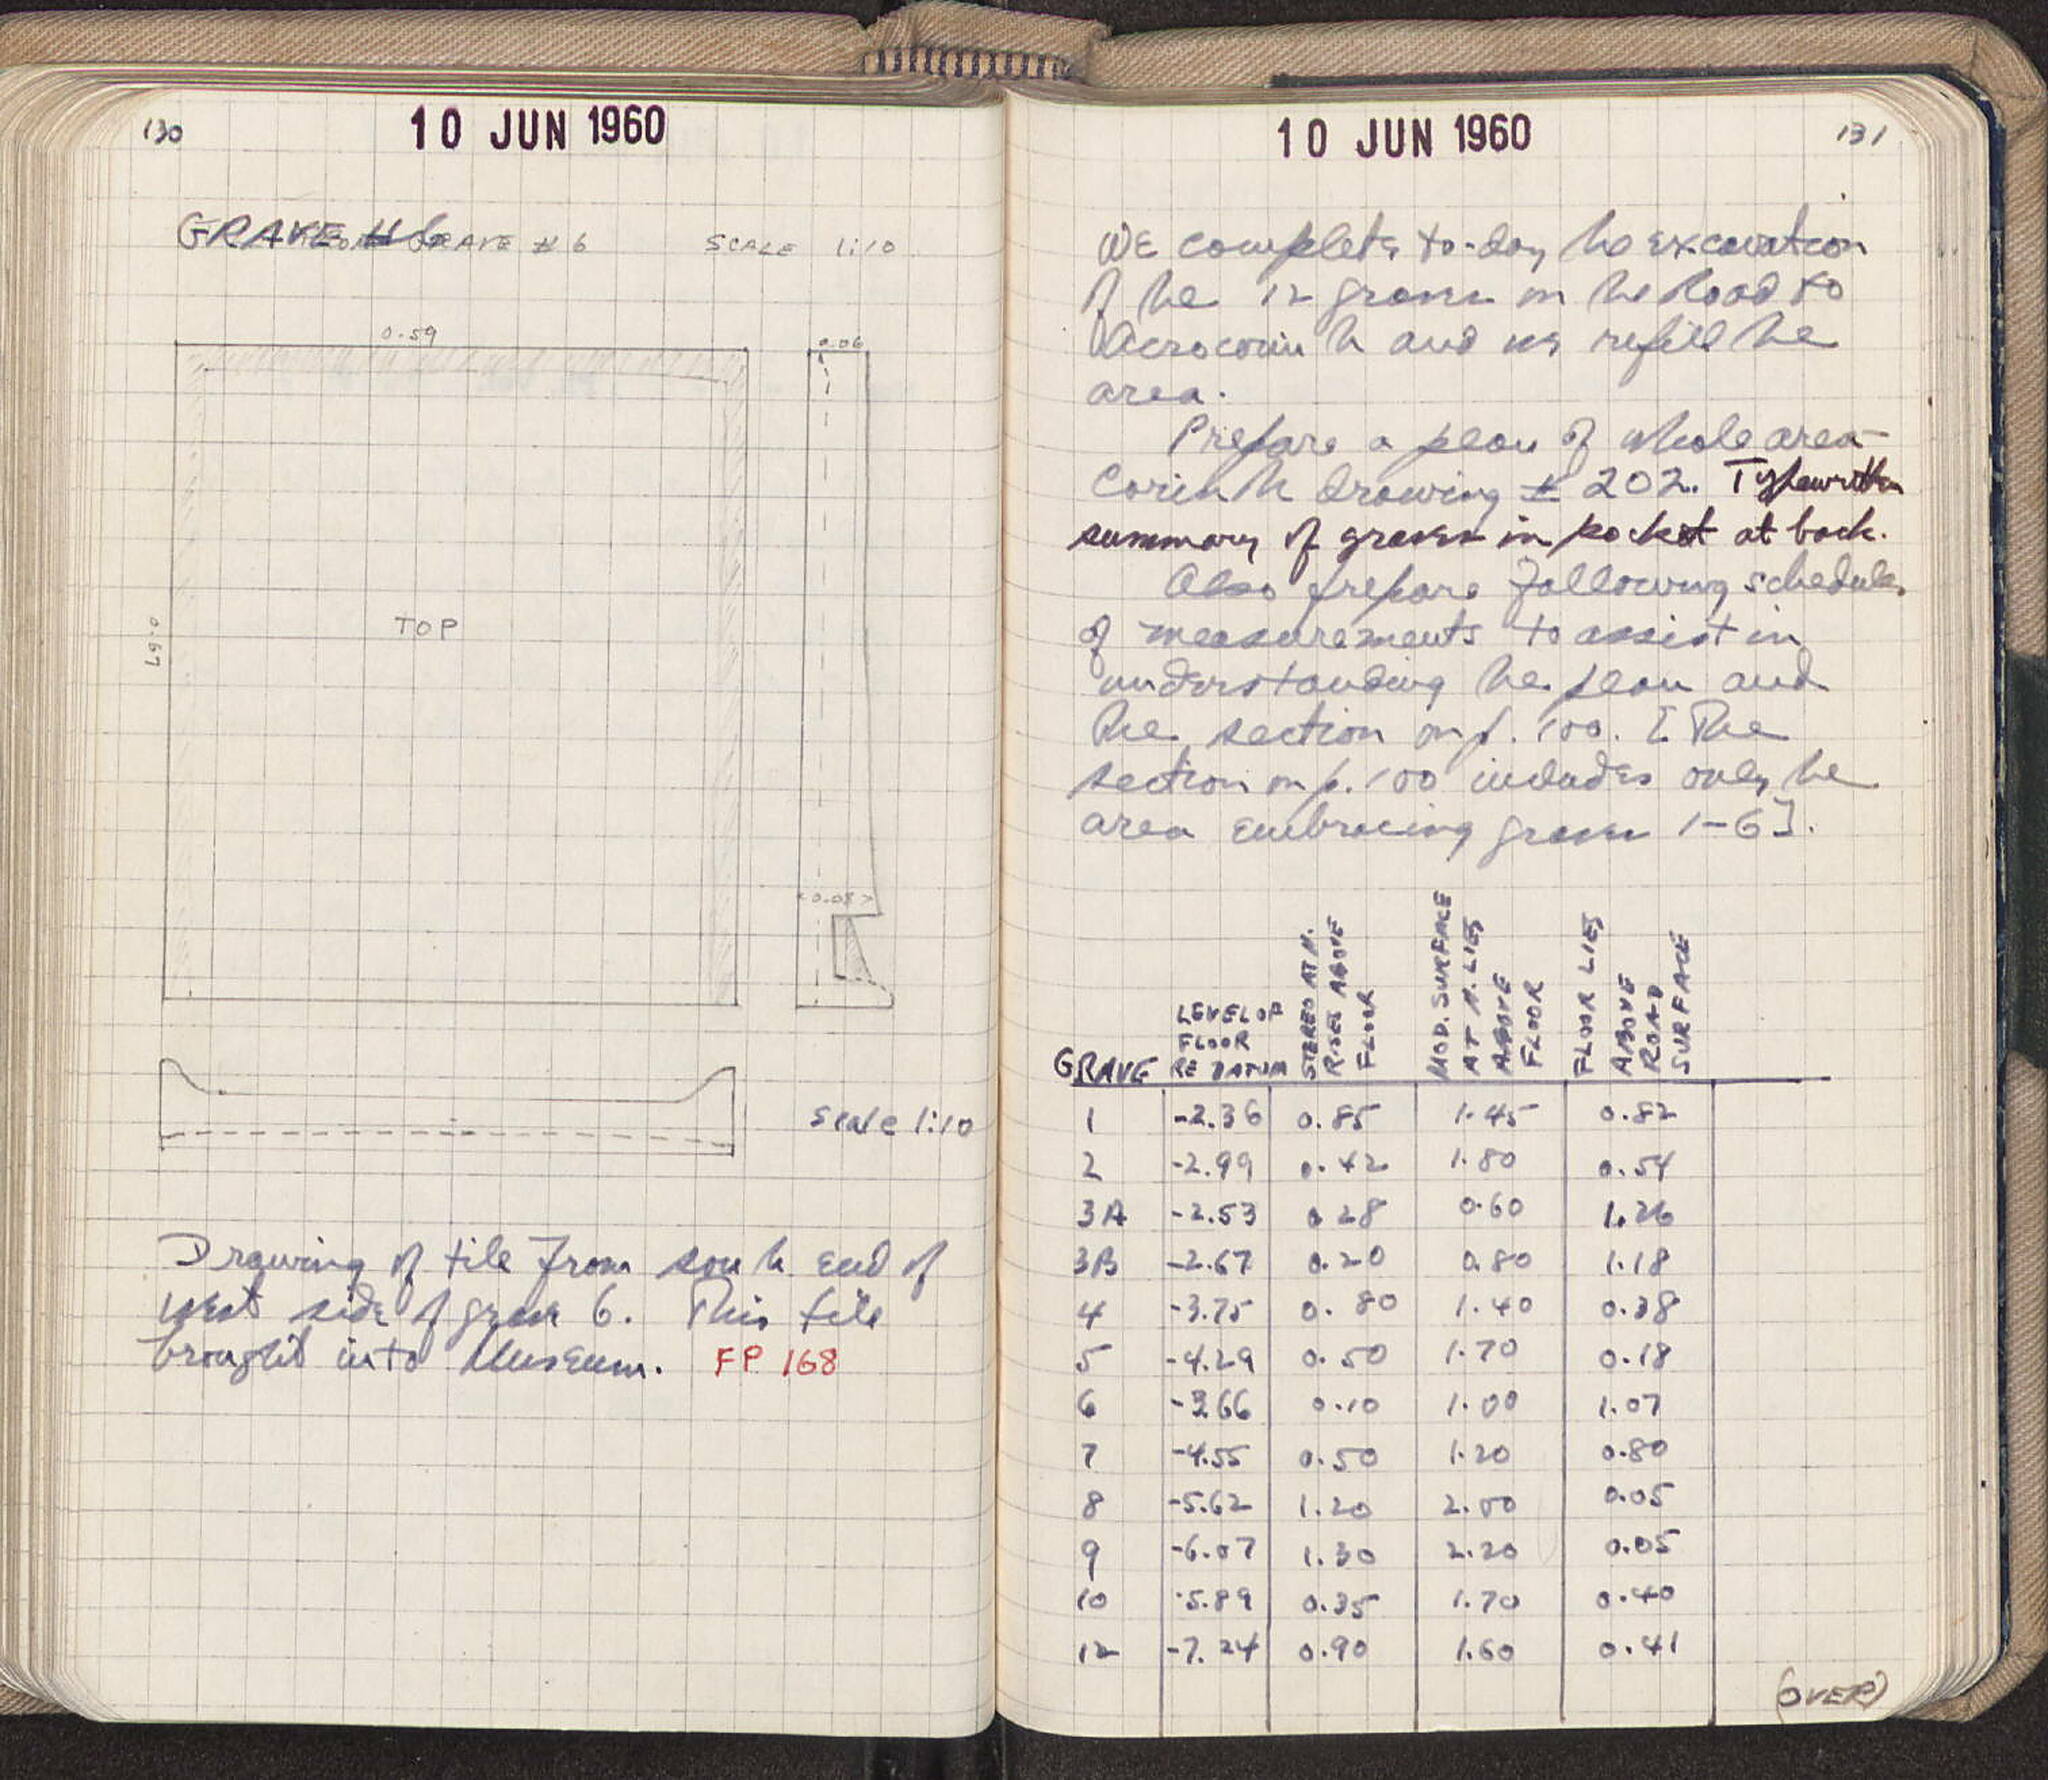 130
10 JUN 1960
GRAVE #6
FROM GRAVE #6 SCALE 1:10
0.59
0.06
0.67
TOP
<0.08>
Scale 1:10
Drawing of tile from south end of
west side of grave 6. This tile
brought into Museum. FP 168
10 JUN 1960
131
WE complete to-day the excavation
of the 12 graves on the Road to
Acrocorinth and we refill the
area.
Prepare a plan of whole area -
Corinth drawing # 202. Typewritten
summary of graves in pocket at back.
Also prepare following schedule
of measurements to assist in
understanding the plan and
the section on p. 100. [The
section on p. 100 includes only the
area embracing graves 1-6].
GRAVE
LEVEL OF
FLOOR
RE DATUM
STEREO AT N.
RISES ABOVE
FLOOR
MOD. SURFACE
AT N. LIES
ABOVE
FLOOR
FLOOR LIES
ABOVE
ROAD
SURFACE
1 -2.36 0.85 1.45 0.82
2 -2.99 0.42 1.80 0.54
3A -2.53 0.28 0.60 1.26
3B -2.67 0.20 0.80 1.18
4 -3.75 0.80 1.40 0.38
5 -4.29 0.50 1.70 0.18
6 -3.66 0.10 1.00 1.07
7 -4.55 0.50 1.20 0.80
8 -5.62 1.20 2.00 0.05
9 -6.07 1.30 2.20 0.05
10 -5.89 0.35 1.70 0.40
12 -7.24 0.90 1.60 0.41
(OVER)